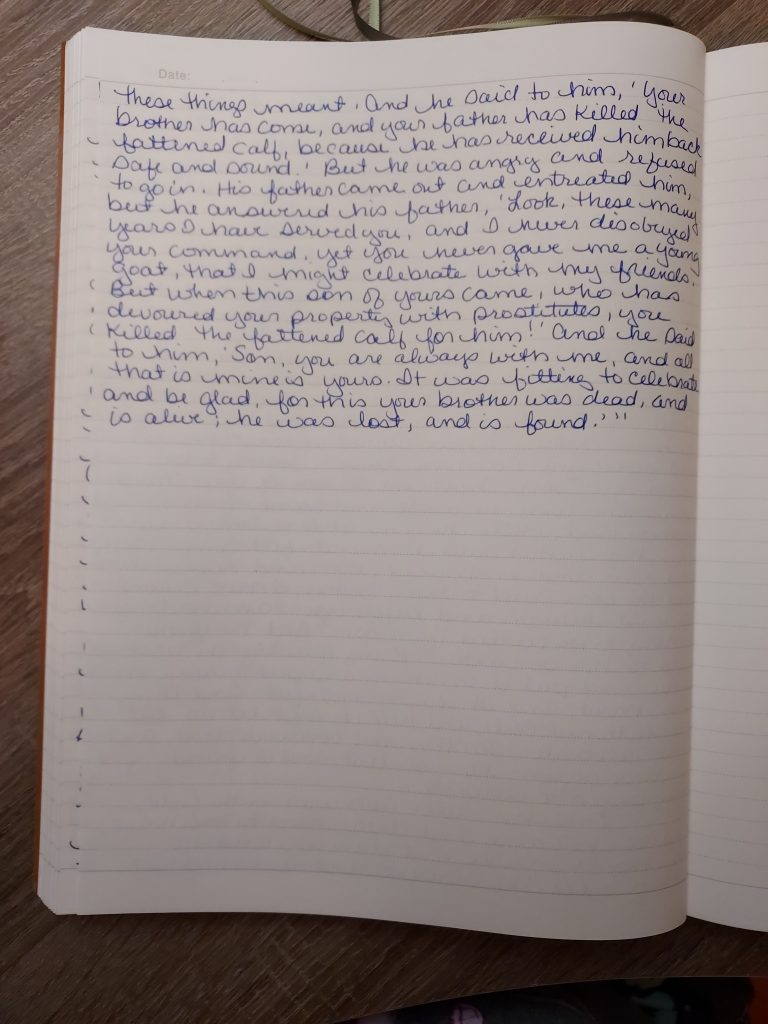 Date:
these things meant. And he said to him, 'Your
brother has come, and your father has killed the
fattened calf, because he has received him back
safe and sound.' But he was angry and refused
to go in. His father came out and entreated him,
but he answered his father, 'Look, these many
years I have served you, and I never disobeyed
your command, yet you never gave me a young
goat, that I might celebrate with my friends.
But when this son of yours came, who has
devoured your property with prostitutes, you
killed the fattened calf for him!' And he said
to him, 'Son, you are always with me, and all
that is mine is yours. It was fitting to celebrate
and be glad, for this your brother was dead, and
is alive; he was lost, and is found.'"